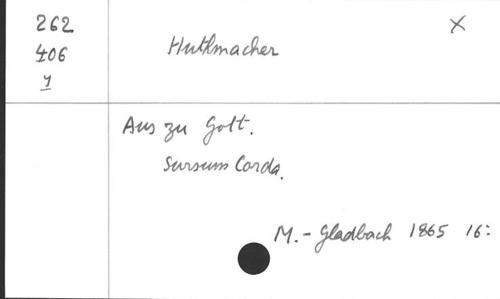 262
406
1
Huthmacher
X
Aus zu Gott.
Sursum Corda.
M.-Gladbach 1865 16: